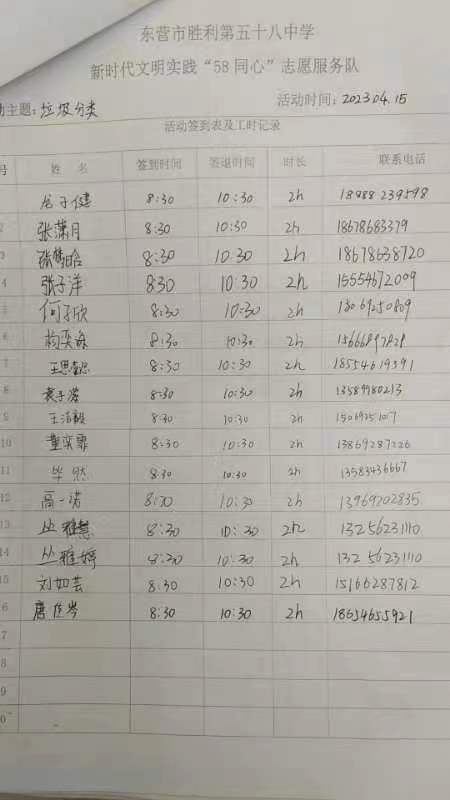 东营市胜利第五十八中学
新时代文明实践“58同心”志愿服务队
动主题：垃圾分类 活动时间：2023.04.15
活动签到表及工时记录
号 姓 名 签到时间 签退时间 时长 联系电话
龙子健 8:30 10:30 2h 18988239598
2 张潇月 8:30 10:30 2h 18678683379
3 8:30 10.30 2h 18678638720
4 张子洋 830 10:30 2h 15554672009
5 何子欣 8:30 10:30 2h
6 8:30 10:30 2h
7 8:30 10:30 2h 18554619391
8 8:30 10:30 2h 13589980213
9 8:30 10:30 2h
10 董奕霏 8:30 10:30 2h 13869287226
11 毕然 8:30 10:30 2h 13583436667
12 高一诺 8:30 10:30 2h 13969202835
13 8:30 10:30 2h 13256231110
14 丛雅婷 8:30 10:30 2h 13256231110
15 刘如芸 8:30 10:30 2h 15166287812
6 8:30 10:30 2h 18654655921
7
8
9
0